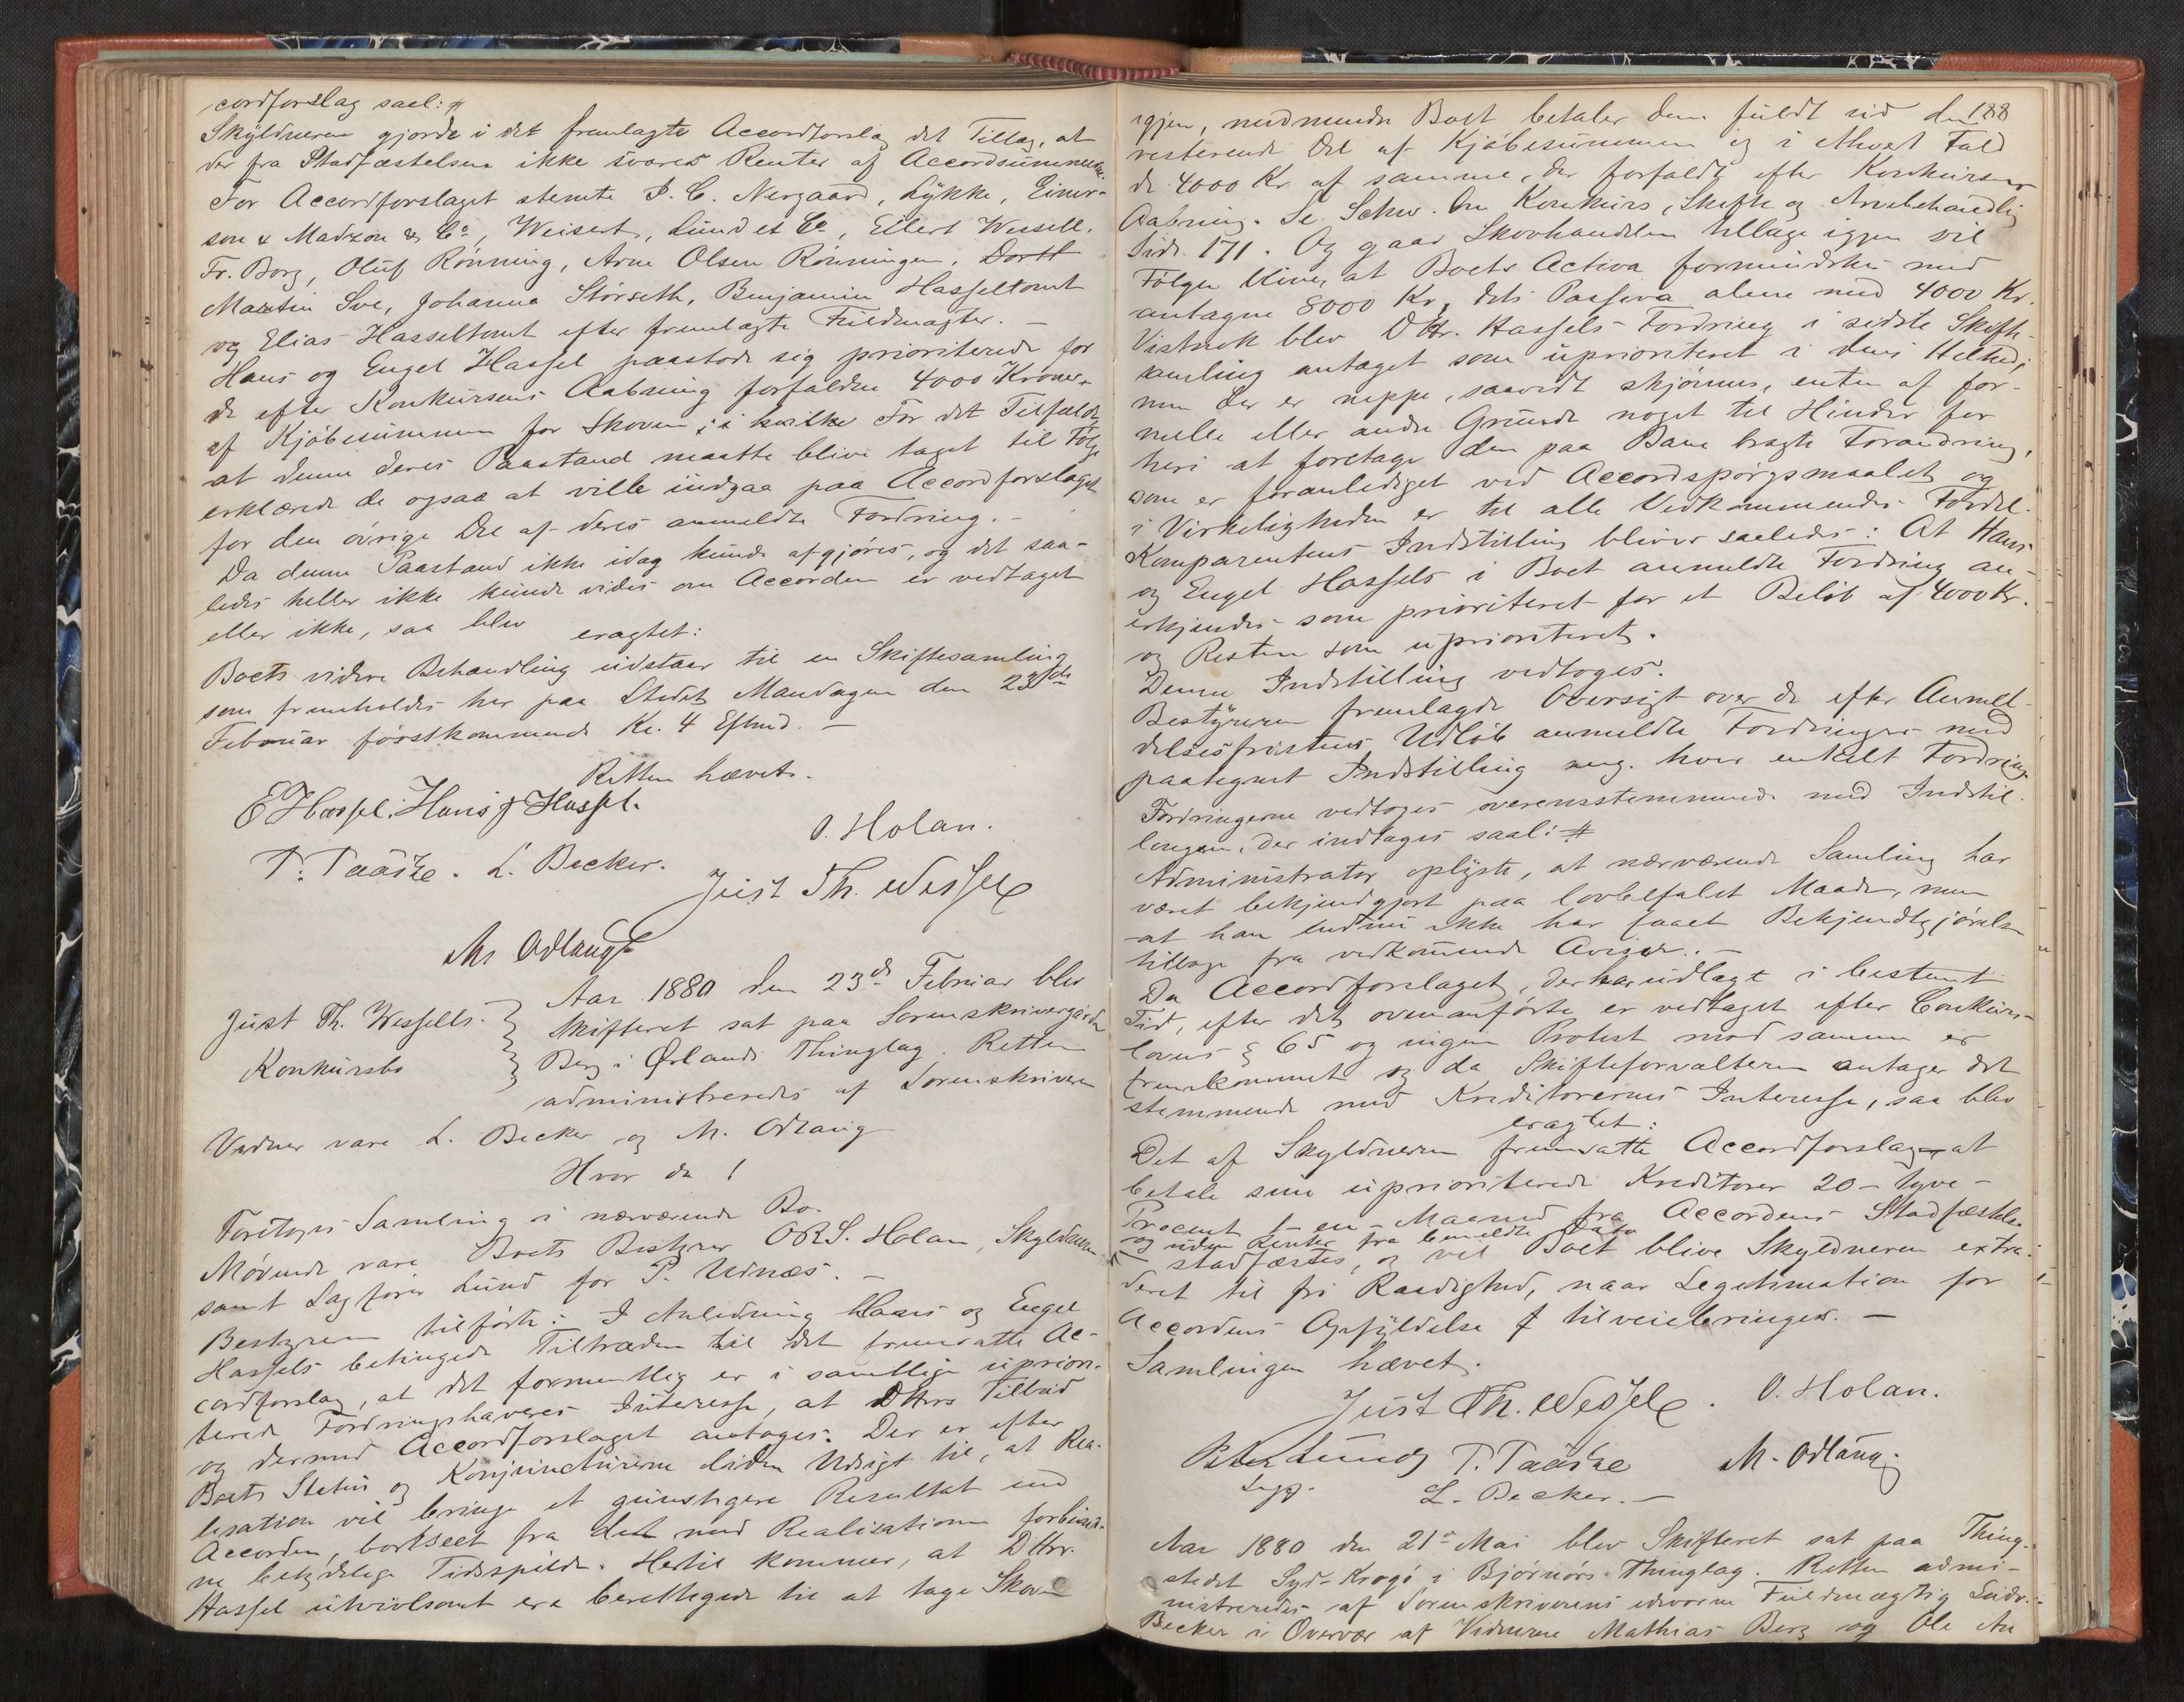 cordforslag saal: #
Skyldneren gjorde i det fremlagte Accordforslag det Tillæg, at
der fra Stadfæstelsen ikke svares Renter af Accordsummen.
For Accordforslaget stemte J. C. Nergaard, Lykke, Einar-
son & Madzon & Co, Weisert, Lund et Co, Ellert Wessell,
Fr. Borg, Oluf Rönning, Arne Olsen Rönningen, Dortt
Martin Sve, Johanna Störseth, Benjamin Hasseltomt
og Elias Hasseltomt efter fremlagte Fuldmagter. –
Hans og Engel Hassel paastode sig prioriterede for
de efter Konkursens Aabning forfaldne 4000 Kroner
af Kjöbesummen for Skoven; i hvilke For det Tilfælde,
at denne deres Paastand maatte blive taget til Fölge
erklærede de ogsaa at ville indgaa paa Accordforslaget
for den övrige Del af deres anmeldte Fordring. –
Da denne Paastand ikke idag kunde afgjöres, og det saa-
ledes heller ikke kunde vides om Accorden er vedtaget
eller ikke, saa blev eragtet:
Boets videre Behandling udstaar til en Skiftesamling
som fremholdes her paa Stedet Mandagen den 23de
Februar förstkommende Kl. 4 Eftmd. –
Retten hævet.
E Hassel. Hans J Hassel.
O. Holan.
T. Taaske. L. Becker.
Just Th. Wessel
M. Odlaug
Aar 1880 den 23de Februar blev
Just Th. Wessells Skifteret sat paa Sorenskrivergården
Konkursbo Berg i Ørlands Thinglag. Retten
administreredes af Sorenskriveren
Vidner vare L. Becker og M. Odlaug
Hvor da!
Foretoges Samling i nærværende Bo.
Mödende vare Boets Bestyrer ORS. Holan, Skyldneren
samt Sagförer Lund for P. Udnæs. –
Bestyreren tilförte: I Anledning Hans og Engel
Hassels betingede Tiltræden til det fremsatte Ac-
cordforslag, at det formentlig er i samtlige uprior-
terede Fordringshaveres Interesse, at DHrrs Tilbud
og dermed Accordforslaget antages. Der er efter
Boets Status og Konjuncturerne liden Udsigt til, at Rea-
lisation vil bringe et gunstigere Resultat end
Accorden, bortseet fra det med Realisationen forbund-
ne betydelige Tidsspilde. Hertil kommer, at DHrr.
Hassel utvivlsomt ere berettigede til at tage Skoven
188
igjen, medmindre Boet betaler dem fuldt ud den
resterende Del af Kjöbesummen og i ethvert Fald
de 4000 Kr af samme, der forfaldt efter Konkursens
Aabning. Se Schw. Om Konkurs, Skifte og Arvebehandling
Side 171. Og gaar Skovhandelen tilbage igjen vil
Fölgen blive, at Boets Activa formindskes med
antagne 8000 Kr, dets Passiva alene med 4000 Kr.
Vistnok blev DHr. Hassels Fordring i sidste Skifte-
samling antaget som uprioriteret i dens Helhed,
men der er neppe, saavidt skjönnes, enten af for-
melle eller andre Grunde noget til Hinder for
heri at foretage den paa Bane bragte Forandring,
som er foranlediget ved Accordspörgsmaalet og
i Virkeligheden er til alle Vedkommendes Fordel.
Komparentens Indstilling bliver saaledes: At Hans
og Engel Hassels i Boet anmeldte Fordring an-
erkjendes som prioriteret for et Belöb af 4000 Kr.
og Resten som uprioriteret.
Denne Indstilling vedtoges.
Bestyreren fremlagde Oversigt over de efter Anmel-
delsesfristens Udlöb anmeldte Fordringer med
paategnet Indstilling ang. hver enkelt Fordring
Fordringerne vedtoges overensstemmende med Indstil-
lingen, der indtages saal: #
Administrator oplyste, at nærværende Samling har
været bekjendtgjort paa lovbefalet Maade, men
at han endnu ikke har faaet Bekjendtgjörelsen
tilbage fra vedkommende Aviser. –
Da Accordforslaget, der har udlagt i bestemt
Tid, efter det ovenanförte er vedtaget efter Conkurs-
lovens § 65 og ingen Protest mod samme er
fremkommet og da Skifteforvalteren antager det
stemmende med Kreditorernes Interesse, saa blev
eragtet:
Det af Skyldneren fremsatte Accordforslag at
betale sine uprioriterede Kreditorer 20 – tyve –
Procent 1 – en – Maaned fra Accordens Stadfæstelse
og uden Renter fra bemeldte Dato
stadfæstes, og vil Boet blive Skyldneren extra-
deret til fri Raadighed, naar Legitimation for
Accordens Opfyldelse tilveiebringes. –
Samlingen hævet.
Just Th. Wessel. O. Holan.
Peter Lund T. Taaske M. Odlaug.
Sagf. L. Becker. –
Aar 1880 den 21de Mai blev Skifteret sat paa Thing-
stedet Syd-Krogö i Björnörs Thinglag. Retten admi-
nistreredes af Sorenskriverens edsvorne Fuldmægtig Ludv.
Becker i Overvær af Vidnerne Mathias Berg og Ole An